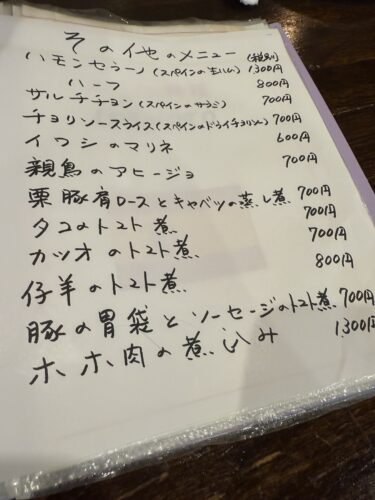 その他のメニュー (税別)
ハモンセラーノ(スペインの生ハム) 1,300円
ハーフ 800円
サルチチョン(スペインのサラミ) 700円
チョリソースライス(スペインのドライチョリソー) 700円
イワシのマリネ 600円
親鳥のアヒージョ 700円
栗豚肩ロースとキャベツの蒸し煮 700円
タコのトマト煮 700円
カツオのトマト煮 700円
仔羊のトマト煮 800円
豚の胃袋とソーセージのトマト煮 700円
ホホ肉の煮込み 1,300円